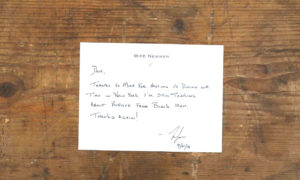 Mike Newman
Dave,
Thanks so much for having us during our
time in New York. I'm still thinking
about
Thanks again!